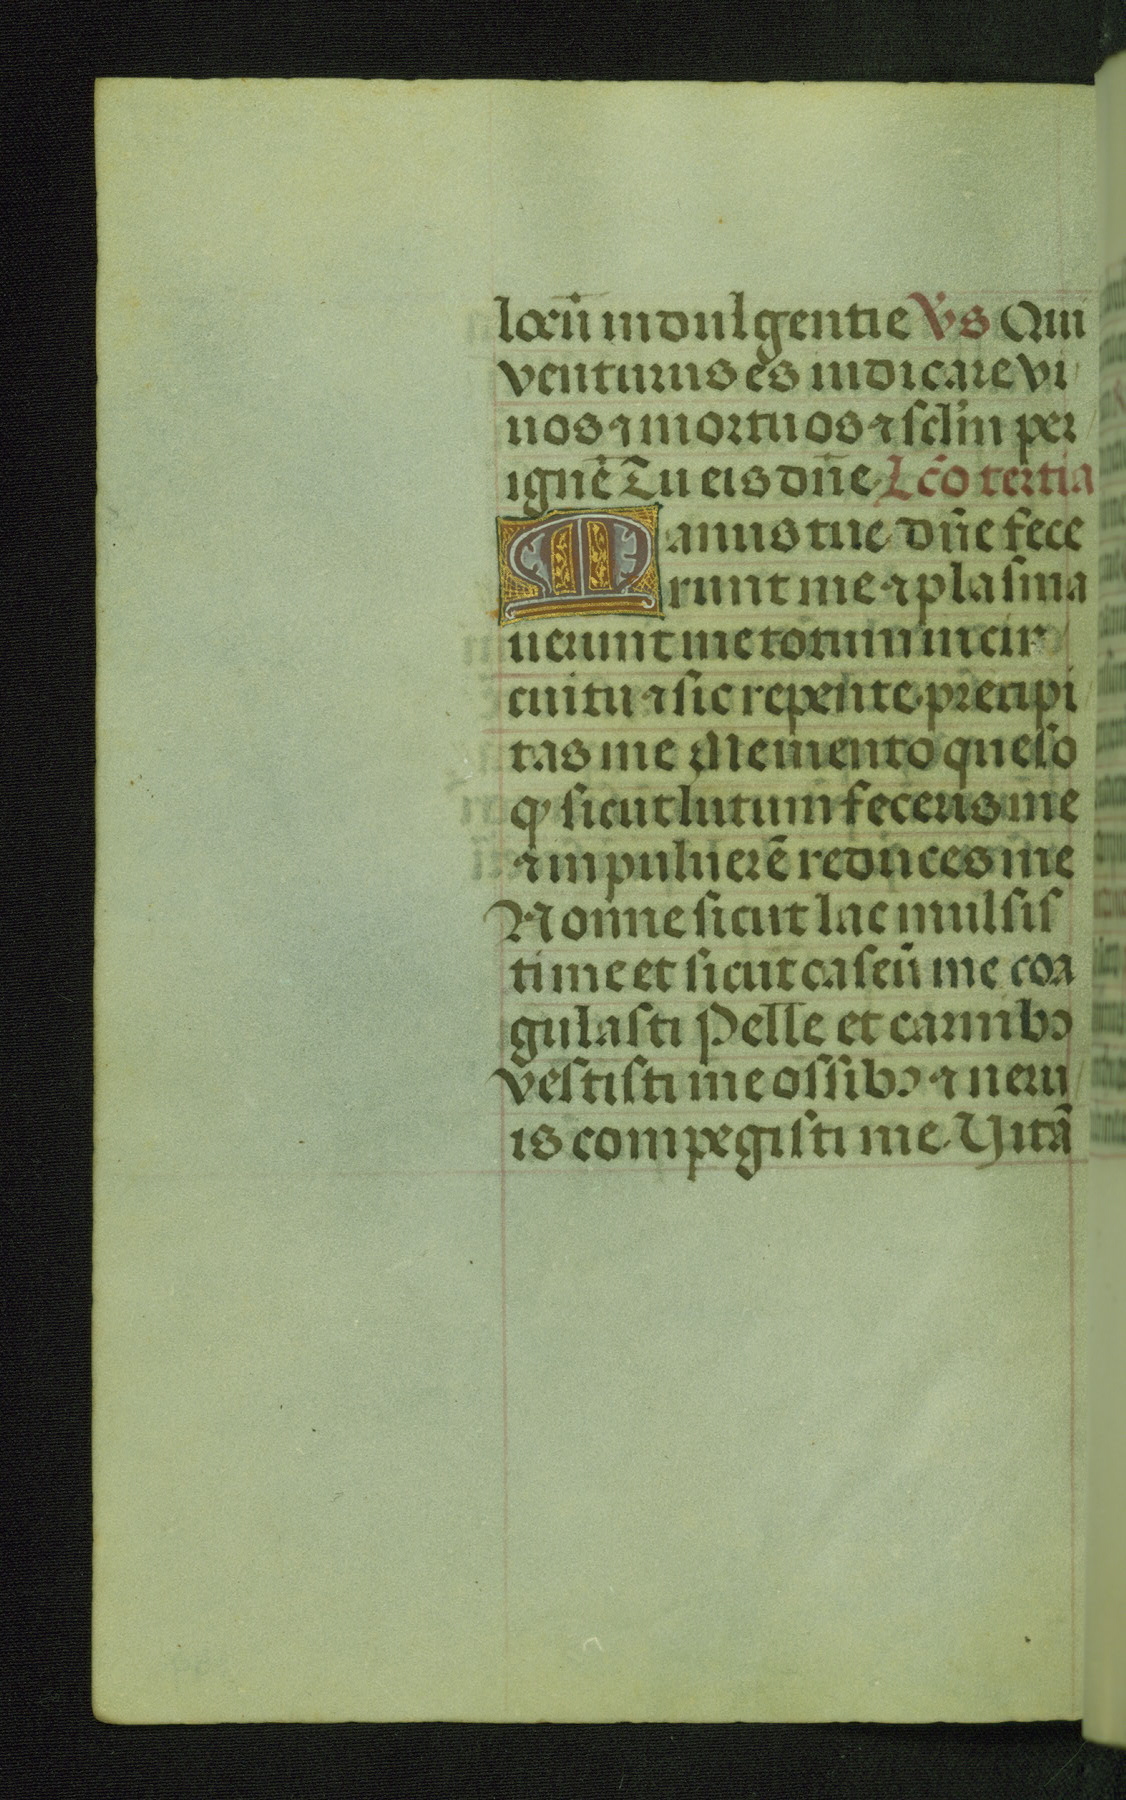 locū indulgentie Vs Qui
venturus es iudicare vi
uos ⁊ mortuos ⁊ sclm̄ per
ignē Tu eis dn̄e Lc̄o tertia
Manus tue dn̄e fece
runt me ⁊ plasma
uerunt me totum in cir
cuitu ⁊ sic repente precipi
tas me Memento queso
qꝫ sicut lutum feceris me
⁊ in puluerē reduces me
Nonne sicut lac mulsis
ti me et sicut caseū me coa
gulasti Pelle et carnibꝫ
vestisti me ossibꝫ ⁊ neru
is compegisti me Vitā